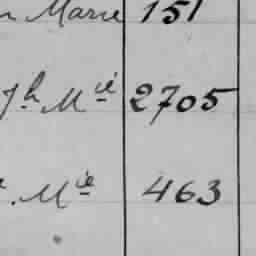 Marie 151
Jh Mie 2705
Mie 463